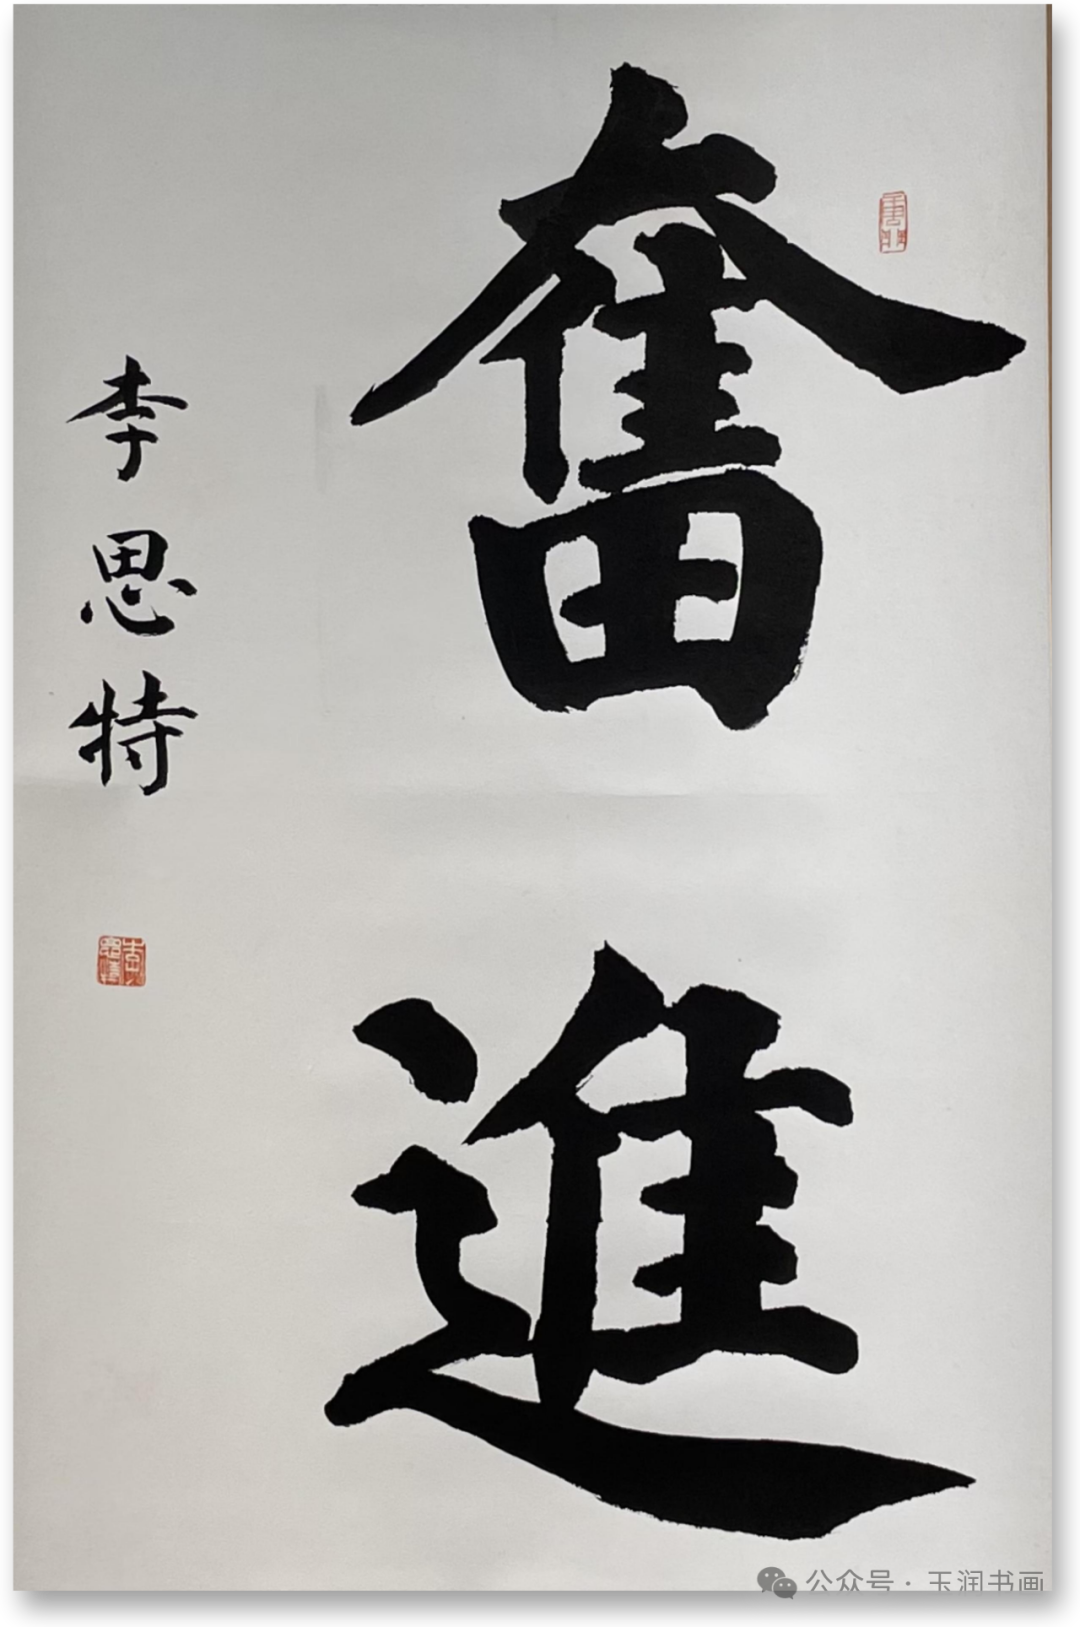 奮進
李思特
公众号 · 玉润书画